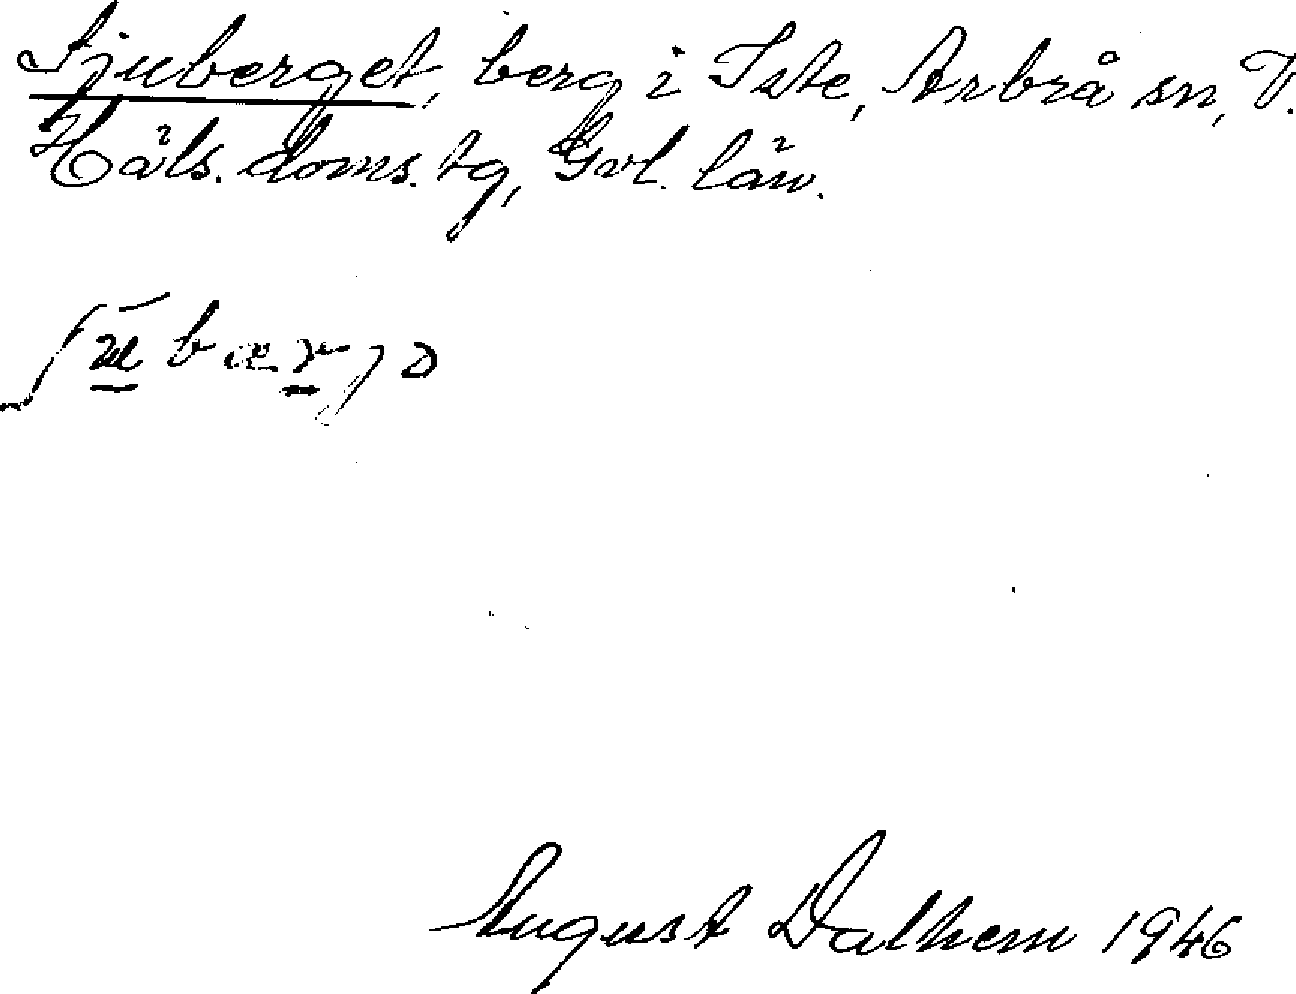 Sjuberget, berg i Iste, Arbrå sn, V.
Häls. doms. tg, Gvl. län.
ʃʉ̄bærjə
August Dalhem 1946